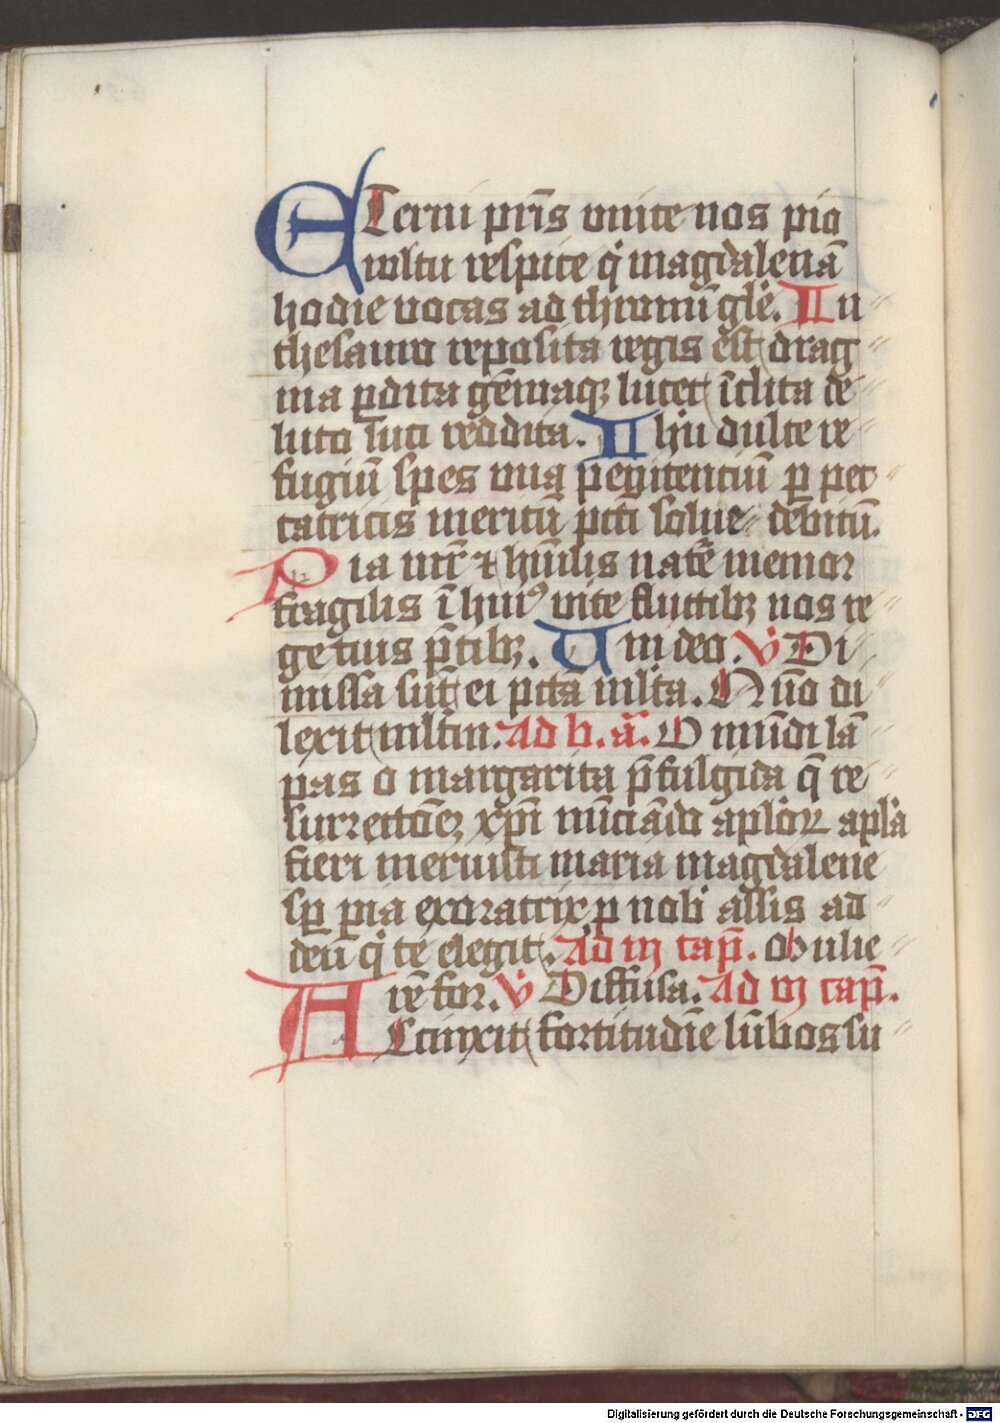 ETerni pr̄is vnice nos pio
wltu respice q̇ magdalenā
hodie vocas ad thronū gl̄e. In
thesauro reposita regis est drag
ma ꝑdita gēmaqꝫ lucet īclita de
luto luci reddita. Ihū dulce re
fugiū spes vna penitenciū ꝑ pec
catricis meritū pc̄ti solue debitū.
Pia mr̄ ⁊ hūilis nat̄e memor
fragilis ī huiꝰ vite fluctibꝫ nos re
ge tuis p̄cibꝫ. Uni deo. v̇ Di
missa sūt ei pctā mlta. Qm̄ di
lexit mltm̄. Ad b. ā. O mūdi lā
pas o margarita p̄fulgida q̄ re
surrectōeꝫ xp̄i nūciādo aplōꝝ apl̄a
fieri meruisti maria magdalene
sꝑ pia exoratrix ꝓ nob̄ assis ad
deū q̇ te elegit. Ad iij cap̄. Mulie
rē for. v̇ Diffusa. Ad vj cap̄.
ACcinxit fortitudīe lūbos su
Digitalisierung gefördert durch die Deutsche Forschungsgemeinschaft - DFG